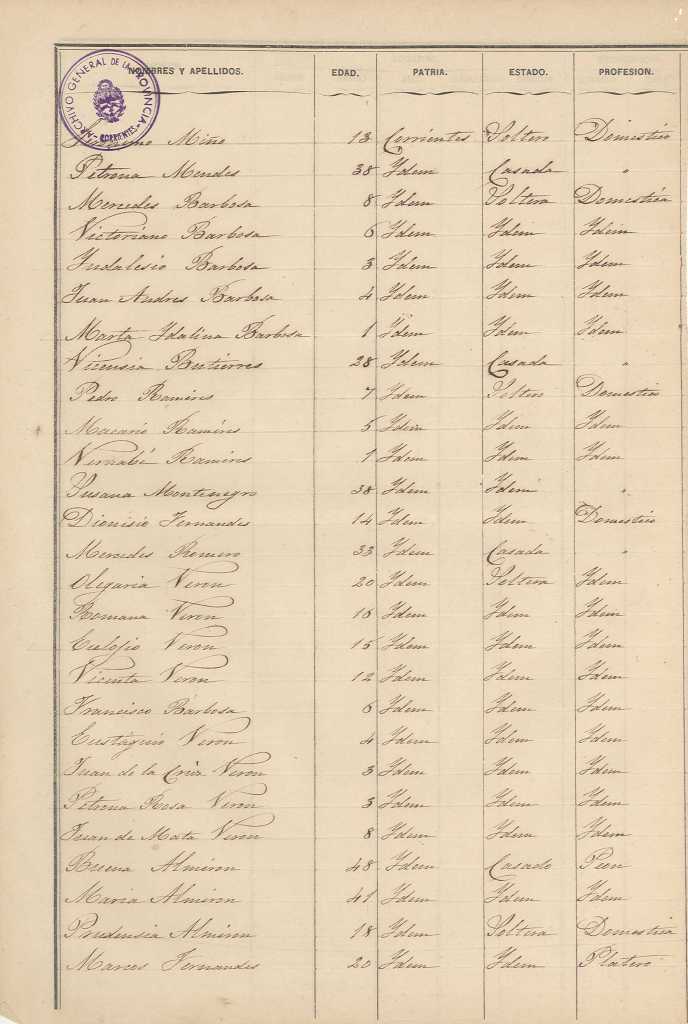 NOMBRES Y APELLIDOS. EDAD. PATRIA. ESTADO. PROFESION.
ARCHIVO GENERAL DE LA PROVINCIA
-CORRIENTES-
Miño 13 Corrientes Soltero Domestico
Petrona Mendes 38 Ydem Casada "
Mercedes Barbosa 8 Ydem Soltera Domestica
Victoriano Barbosa 6 Ydem Ydem Ydem
Yndalesio Barbosa 3 Ydem Ydem Ydem
Juan Andres Barbosa 4 Ydem Ydem Ydem
Marta Ydalina Barbosa 1 Ydem Ydem Ydem
Vicensia Butierres 28 Ydem Casada "
Pedro Ramires 7 Ydem Soltero Domestico
Macario Ramires 5 Ydem Ydem Ydem
Vernabé Ramires 1 Ydem Ydem Ydem
Susana Montenegro 38 Ydem Ydem "
Dionisio Fernandes 14 Ydem Ydem Domestico
Mercedes Romero 33 Ydem Casada "
Olegaria Veron 20 Ydem Soltera Ydem
Romana Veron 16 Ydem Ydem Ydem
Eulojio Veron 15 Ydem Ydem Ydem
Vicenta Veron 12 Ydem Ydem Ydem
Francisco Barbosa 6 Ydem Ydem Ydem
Eustaquio Veron 4 Ydem Ydem Ydem
Juan de la Cruz Veron 3 Ydem Ydem Ydem
Petrona Rosa Veron 3 Ydem Ydem Ydem
Juan de Mata Veron 8 Ydem Ydem Ydem
Buena Almiron 48 Ydem Casado Peon
Maria Almiron 41 Ydem Ydem Ydem
Prudensia Almiron 18 Ydem Soltera Domestica
Marcos Fernandes 20 Ydem Ydem Platero